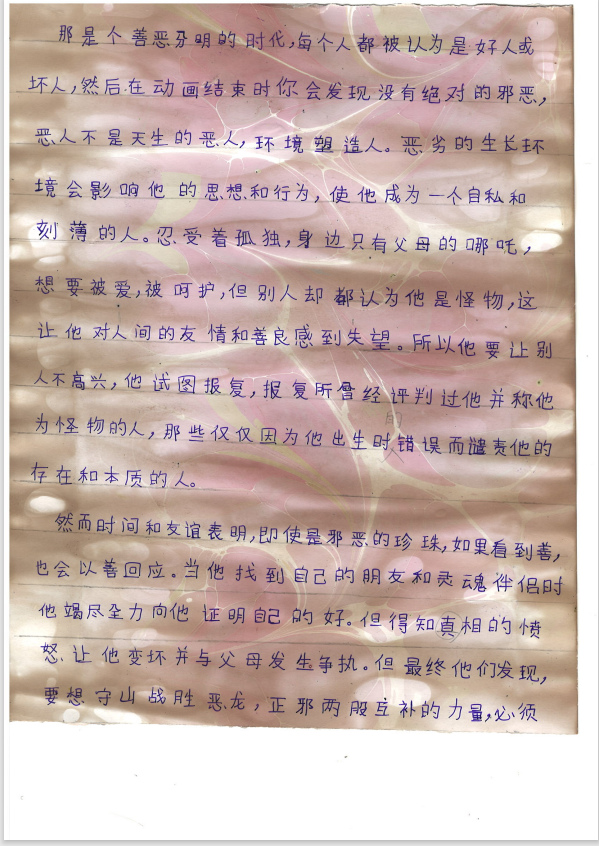 那是个善恶分明的时代,每个人都被认为是好人或
坏人,然后在动画结束时你会发现没有绝对的邪恶,
恶人不是天生的恶人,环境塑造人。恶劣的生长环
境会影响他的思想和行为,使他成为一个自私和
刻薄的人。忍受着孤独,身边只有父母的哪吒,
想要被爱,被呵护,但别人却都认为他是怪物,这
让他对人间的友情和善良感到失望。所以他要让别
人不高兴,他试图报复,报复所曾经评判过他并称他
为怪物的人,那些仅仅因为他出生时的错误而谴责他的
存在和本质的人。
然而时间和友谊表明,即使是邪恶的珍珠,如果看到善,
也会以善回应。当他找到自己的朋友和灵魂伴侣时
他竭尽全力向他证明自己的好。但得知真相的愤
怒让他变坏并与父母发生争执。但最终他们发现,
要想守山战胜恶龙,正邪两股互补的力量,必须